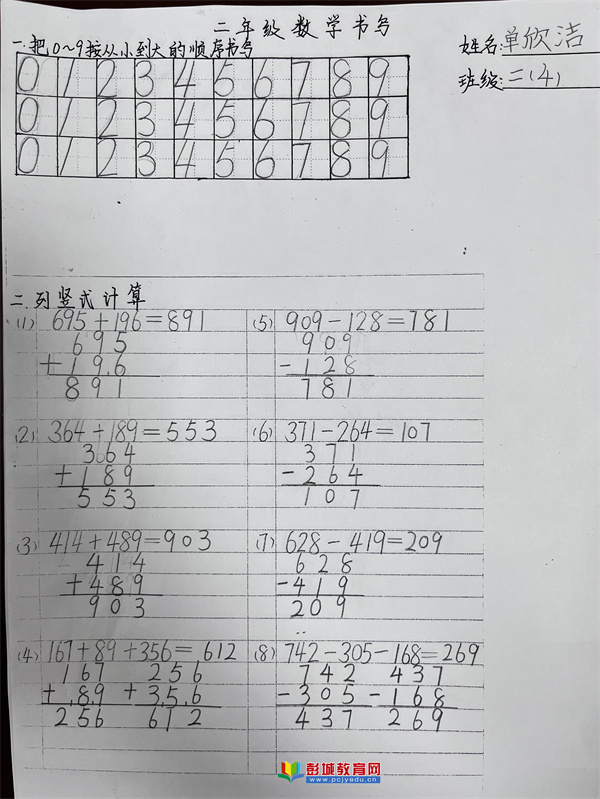 二年级数学书写
姓名:单欣洁
一.把0~9按从小到大的顺序书写
班级:二(4)
0 1 2 3 4 5 6 7 8 9
0 1 2 3 4 5 6 7 8 9
0 1 2 3 4 5 6 7 8 9
二.列竖式计算
(1) 695+196=891
695
+196
891
(2) 364+189=553
364
+189
553
(3) 414+489=903
414
+489
903
(4) 167+89+356=612
167 256
+89 +356
256 612
(5) 909-128=781
909
-128
781
(6) 371-264=107
371
-264
107
(7) 628-419=209
628
-419
209
(8) 742-305-168=269
742 437
-305 -168
437 269
彭城教育网
www.pcjyedu.cn